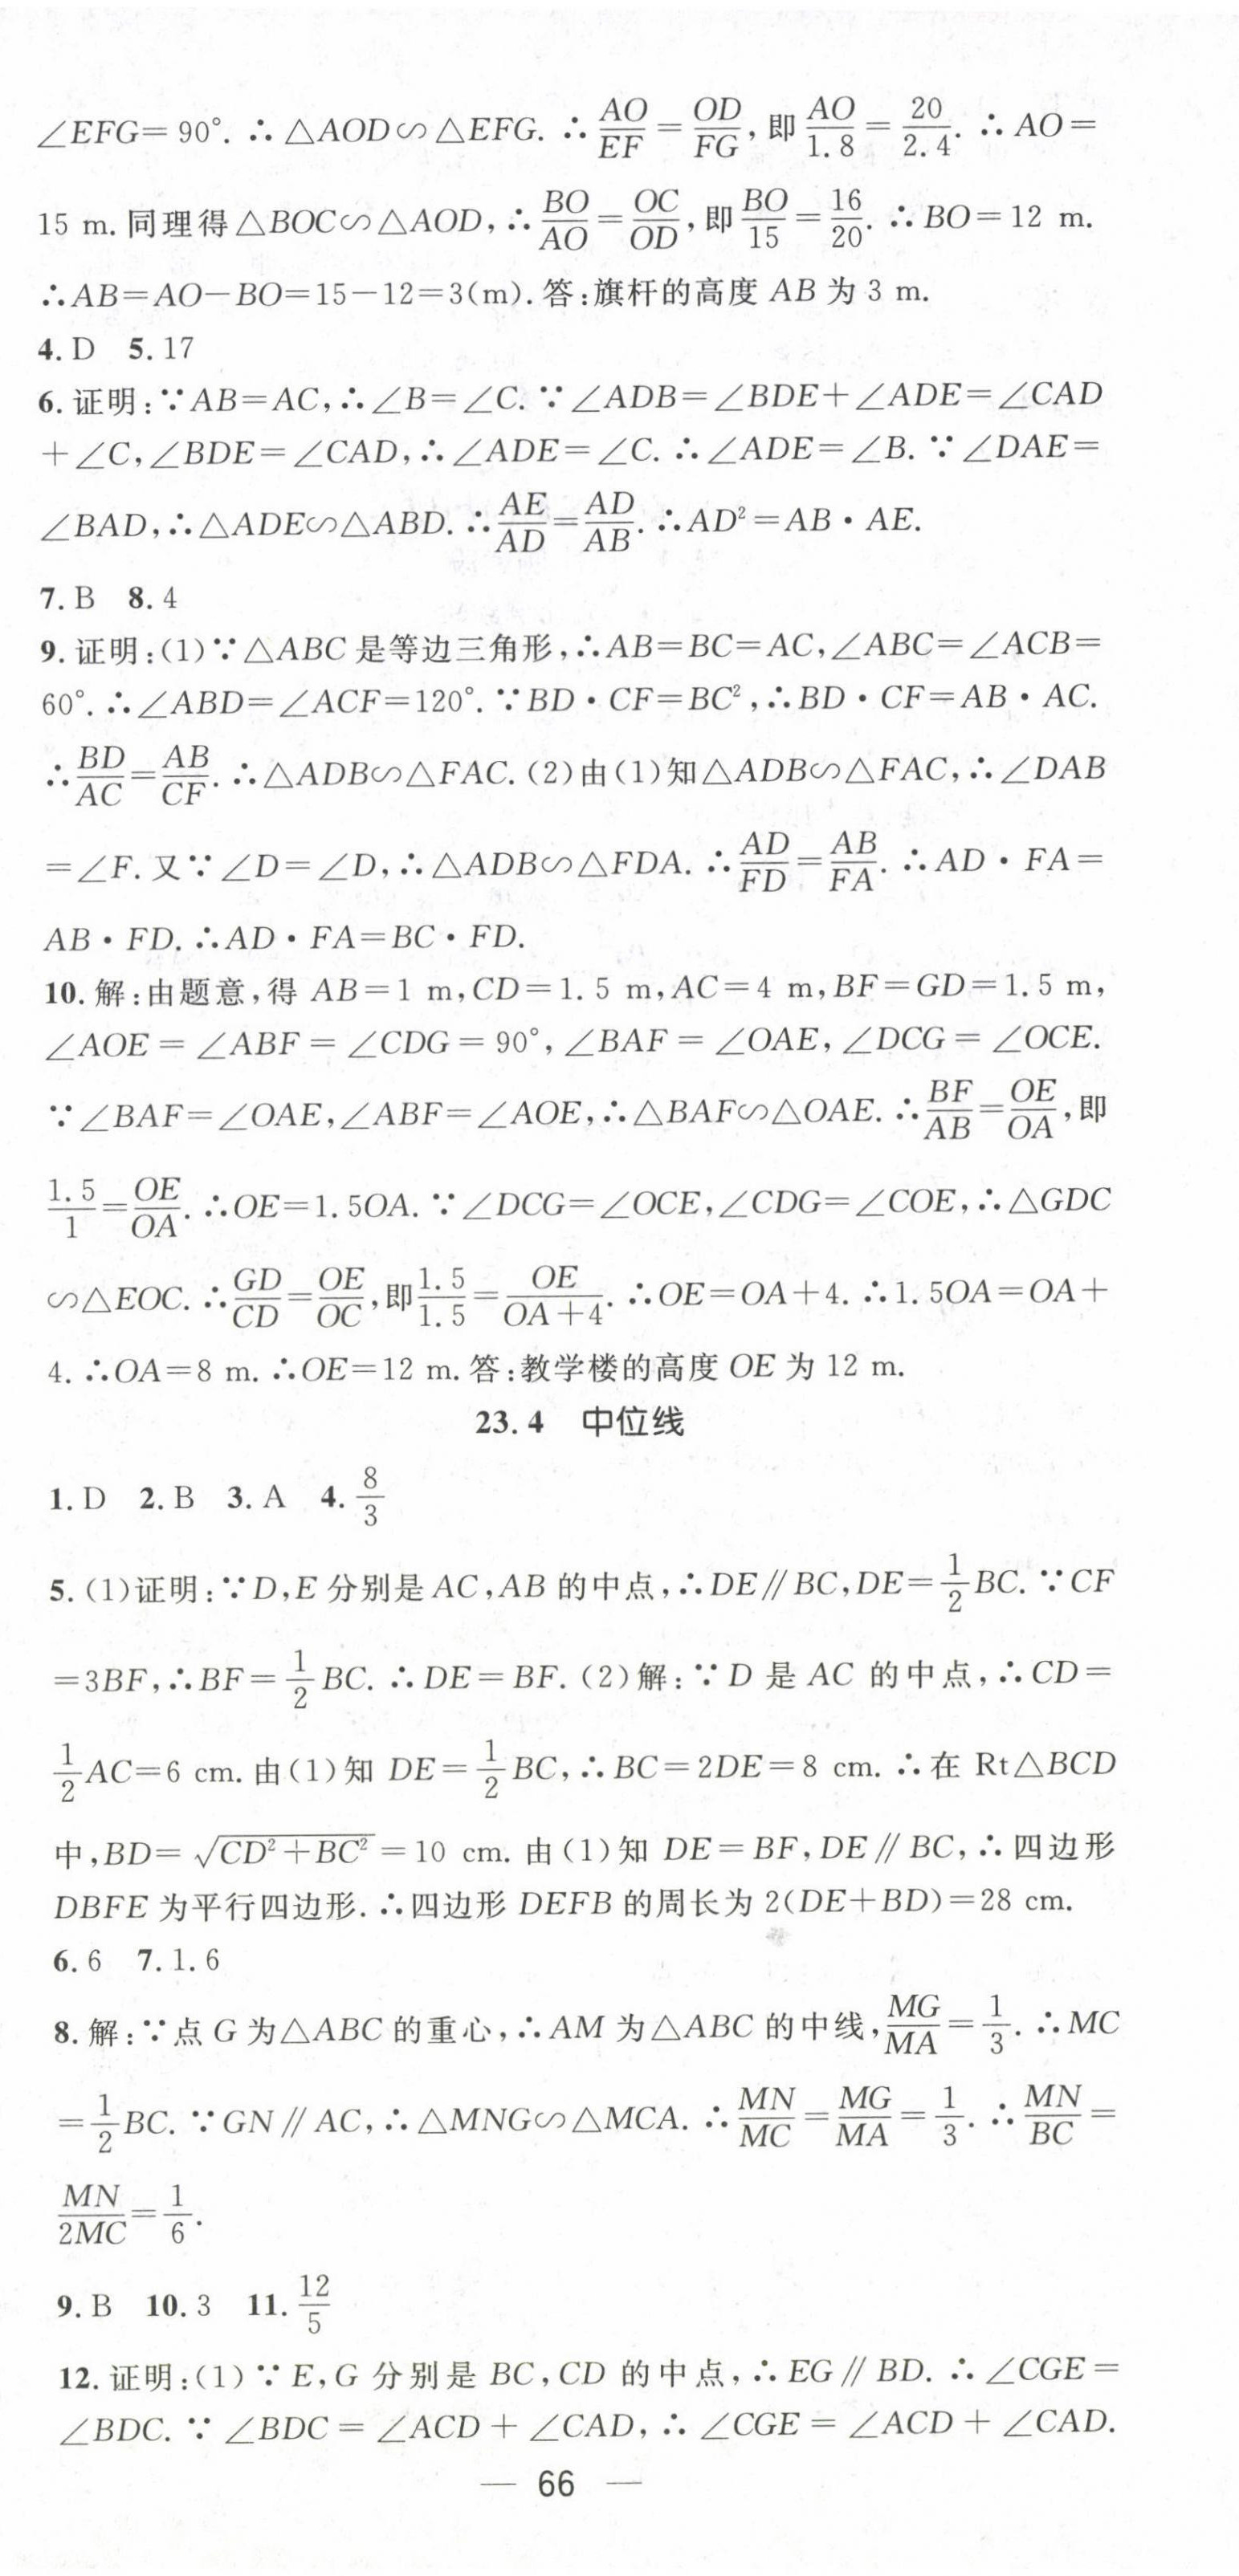 ∠EFG=90°.∴△AOD∽△EFG.∴AO/EF=OD/FG,即AO/1.8=20/2.4.∴AO=
15 m.同理得△BOC∽△AOD,∴BO/AO=OC/OD,即BO/15=16/20.∴BO=12 m.
∴AB=AO-BO=15-12=3(m).答:旗杆的高度 AB 为 3 m.
4.D 5.17
6.证明:∵AB=AC,∴∠B=∠C.∵∠ADB=∠BDE+∠ADE=∠CAD
+∠C,∠BDE=∠CAD,∴∠ADE=∠C.∴∠ADE=∠B.∵∠DAE=
∠BAD,∴△ADE∽△ABD.∴AE/AD=AD/AB.∴AD²=AB·AE.
7.B 8.4
9.证明:(1)∵△ABC 是等边三角形,∴AB=BC=AC,∠ABC=∠ACB=
60°.∴∠ABD=∠ACF=120°.∵BD·CF=BC²,∴BD·CF=AB·AC.
∴BD/AC=AB/CF.∴△ADB∽△FAC.(2)由(1)知△ADB∽△FAC,∴∠DAB
=∠F.又∵∠D=∠D,∴△ADB∽△FDA.∴AD/FD=AB/FA.∴AD·FA=
AB·FD.∴AD·FA=BC·FD.
10.解:由题意,得 AB=1 m,CD=1.5 m,AC=4 m,BF=GD=1.5 m,
∠AOE=∠ABF=∠CDG=90°,∠BAF=∠OAE,∠DCG=∠OCE.
∵∠BAF=∠OAE,∠ABF=∠AOE,∴△BAF∽△OAE.∴BF/AB=OE/OA,即
1.5/1=OE/OA.∴OE=1.5OA.∵∠DCG=∠OCE,∠CDG=∠COE,∴△GDC
∽△EOC.∴GD/CD=OE/OC,即1.5/1.5=OE/(OA+4).∴OE=OA+4.∴1.5OA=OA+
4.∴OA=8 m.∴OE=12 m.答:教学楼的高度 OE 为 12 m.
23.4 中位线
1.D 2.B 3.A 4.8/3
5.(1)证明:∵D,E 分别是 AC,AB 的中点,∴DE∥BC,DE=1/2BC.∵CF
=3BF,∴BF=1/2BC.∴DE=BF.(2)解:∵D 是 AC 的中点,∴CD=
1/2AC=6 cm.由(1)知 DE=1/2BC,∴BC=2DE=8 cm.∴在 Rt△BCD
中,BD=√(CD²+BC²)=10 cm.由(1)知 DE=BF,DE∥BC,∴四边形
DBFE 为平行四边形.∴四边形 DEFB 的周长为 2(DE+BD)=28 cm.
6.6 7.1.6
8.解:∵点 G 为△ABC 的重心,∴AM 为△ABC 的中线,MG/MA=1/3.∴MC
=1/2BC.∵GN∥AC,∴△MNG∽△MCA.∴MN/MC=MG/MA=1/3.∴MN/BC=
MN/2MC=1/6.
9.B 10.3 11.12/5
12.证明:(1)∵E,G 分别是 BC,CD 的中点,∴EG∥BD.∴∠CGE=
∠BDC.∵∠BDC=∠ACD+∠CAD,∴∠CGE=∠ACD+∠CAD.
— 66 —